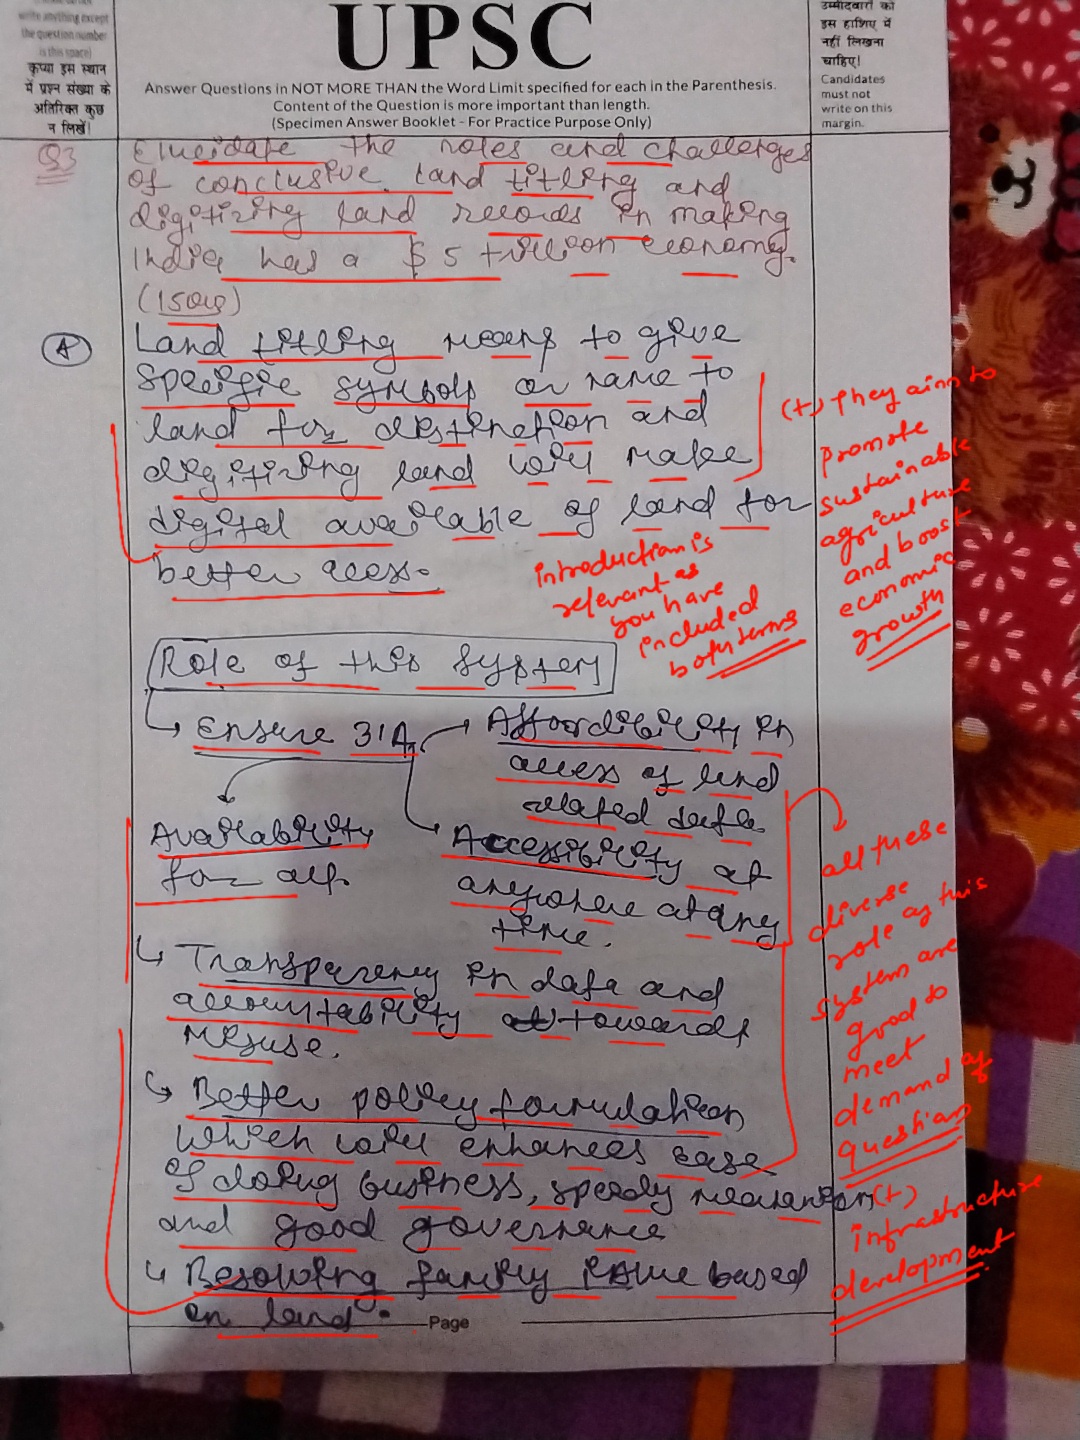 write anything except
the question number
in this space)
कृप्या इस स्थान
में प्रश्न संख्या के
अतिरिक्त कुछ
न लिखें।
UPSC
Answer Questions in NOT MORE THAN the Word Limit specified for each in the Parenthesis.
Content of the Question is more important than length.
(Specimen Answer Booklet - For Practice Purpose Only)
उम्मीदवारों को
इस हाशिए में
नहीं लिखना
चाहिए।
Candidates
must not
write on this
margin.
Q3
Elucidate the roles and challenges
of conclusive land titling and
digitizing land records in making
India has a $ 5 trillion economy.
(150w)
A
Land titling means to give
specific symbols or name to
land for distinction and
digitizing land will make
digital available of land for
better acess.
(+) They aim to
promote
sustainable
agriculture
and boost
economic
growth
introduction is
relevant as
you have
included
both terms
Role of this system
Ensure 3'A
Affordibility in
access of land
related data
Availability
for all.
Accessibility at
anywhere at any
time.
Transparency in data and
accountability towards
misuse.
all these
diverse
role of this
system are
good to
meet
demand of
question
Better policy formulation
which will enhances ease
of doing business, speedy
and good governance
(+)
infrastructure
development
Resolving family issue based
on land.
Page